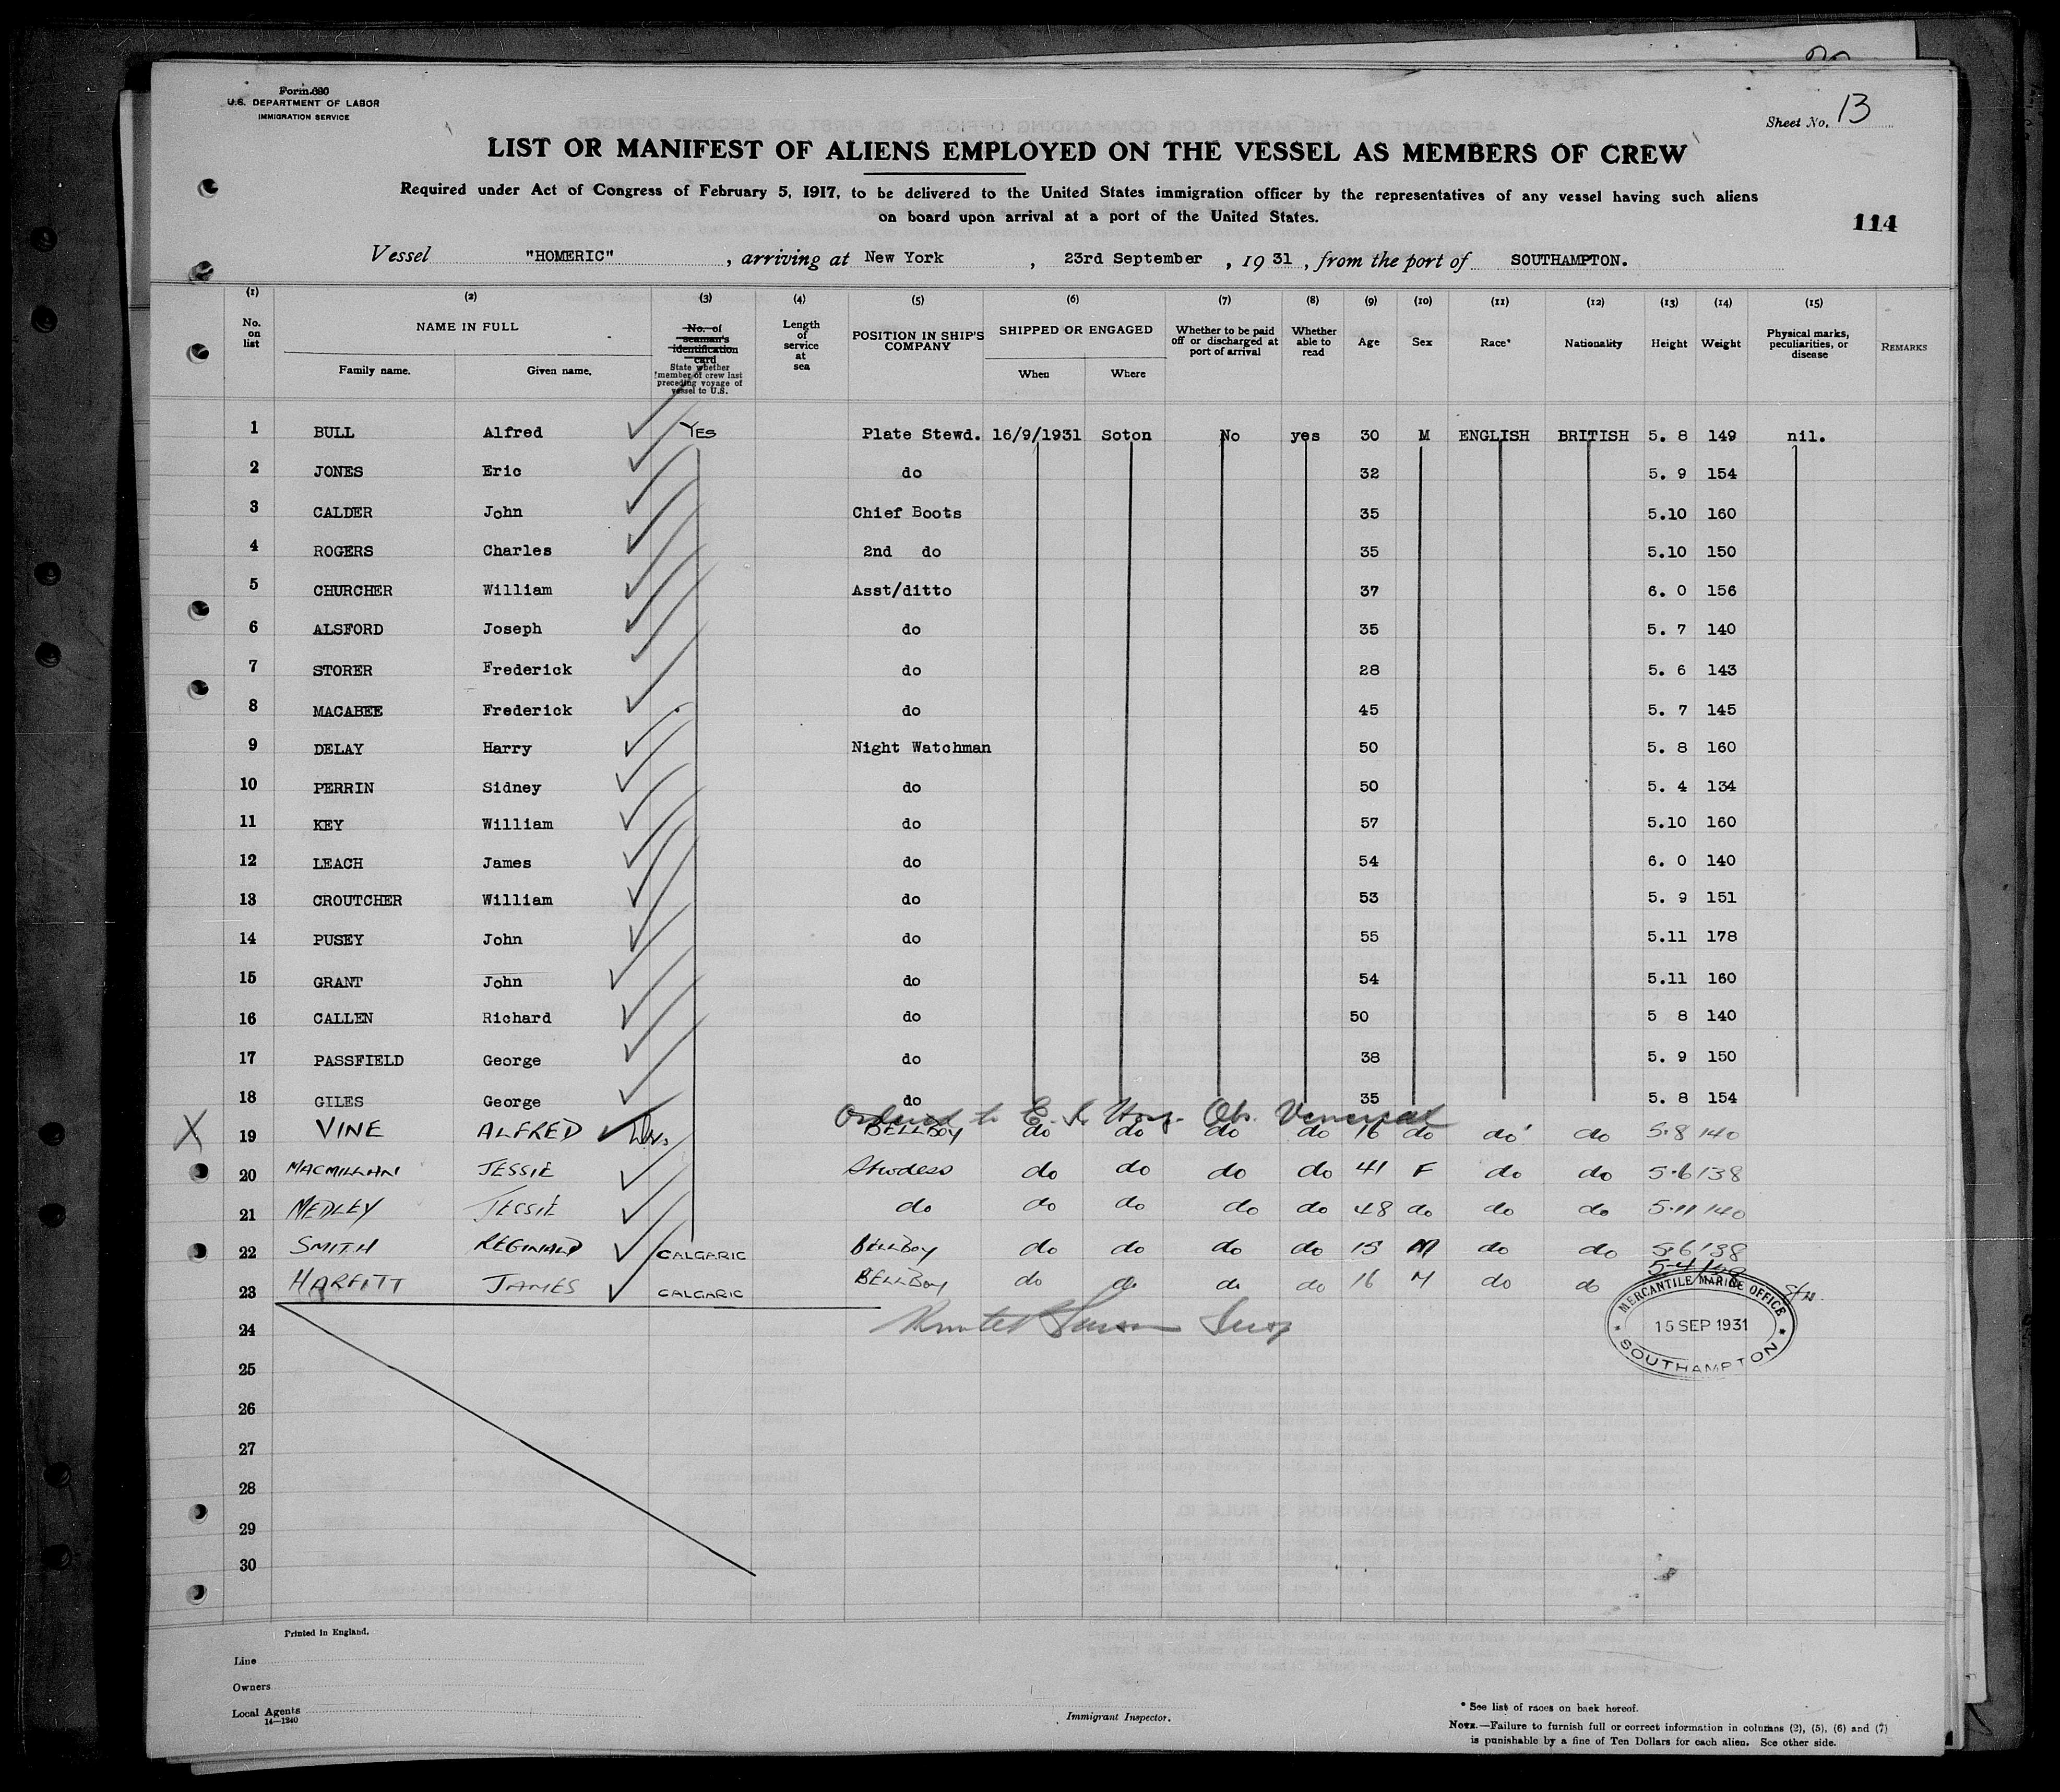 Form 680
U.S. DEPARTMENT OF LABOR
IMMIGRATION SERVICE
Sheet No. 13
LIST OR MANIFEST OF ALIENS EMPLOYED ON THE VESSEL AS MEMBERS OF CREW
Required under Act of Congress of February 5, 1917, to be delivered to the United States immigration officer by the representatives of any vessel having such aliens
on board upon arrival at a port of the United States.
114
Vessel "HOMERIC", arriving at New York, 23rd September, 1931, from the port of SOUTHAMPTON.
(1) (2) (3) (4) (5) (6) (7) (8) (9) (10) (11) (12) (13) (14) (15)
No. on list NAME IN FULL Family name. Given name. No. of seaman's identification card State whether member of crew last preceding voyage of vessel to U.S. Length of service at sea POSITION IN SHIP'S COMPANY SHIPPED OR ENGAGED When Where Whether to be paid off or discharged at port of arrival Whether able to read Age Sex Race* Nationality Height Weight Physical marks, peculiarities, or disease REMARKS
1 BULL Alfred YES Plate Stewd. 16/9/1931 Soton No yes 30 M ENGLISH BRITISH 5. 8 149 nil.
2 JONES Eric do 32 5. 9 154
3 CALDER John Chief Boots 35 5.10 160
4 ROGERS Charles 2nd do 35 5.10 150
5 CHURCHER William Asst/ditto 37 6. 0 156
6 ALSFORD Joseph do 35 5. 7 140
7 STORER Frederick do 28 5. 6 143
8 MACABEE Frederick do 45 5. 7 145
9 DELAY Harry Night Watchman 50 5. 8 160
10 PERRIN Sidney do 50 5. 4 134
11 KEY William do 57 5.10 160
12 LEACH James do 54 6. 0 140
13 CROUTCHER William do 53 5. 9 151
14 PUSEY John do 55 5.11 178
15 GRANT John do 54 5.11 160
16 CALLEN Richard do 50 5 8 140
17 PASSFIELD George do 38 5. 9 150
18 GILES George do 35 5. 8 154
Ordered to E. I. Hosp. Obs. Venereal
X 19 VINE ALFRED BELLBOY do do do do 16 do do do 5.8 140
20 MACMILLAN JESSIE Stwdess do do do do 41 F do do 5.6 138
21 MEDLEY JESSIE do do do do do 48 do do do 5.11 140
22 SMITH REGINALD CALGARIC BELLBOY do do do do 15 M do do 5.6 138
23 HARFITT JAMES CALGARIC BELLBOY do do do do 16 M do do 5-4
24
25
26
27
28
29
30
MERCANTILE MARINE OFFICE
15 SEP 1931
SOUTHAMPTON
Printed in England.
Line
Owners
Local Agents
14—1240
Immigrant Inspector.
* See list of races on back hereof.
NOTE.—Failure to furnish full or correct information in columns (2), (5), (6) and (7)
is punishable by a fine of Ten Dollars for each alien. See other side.